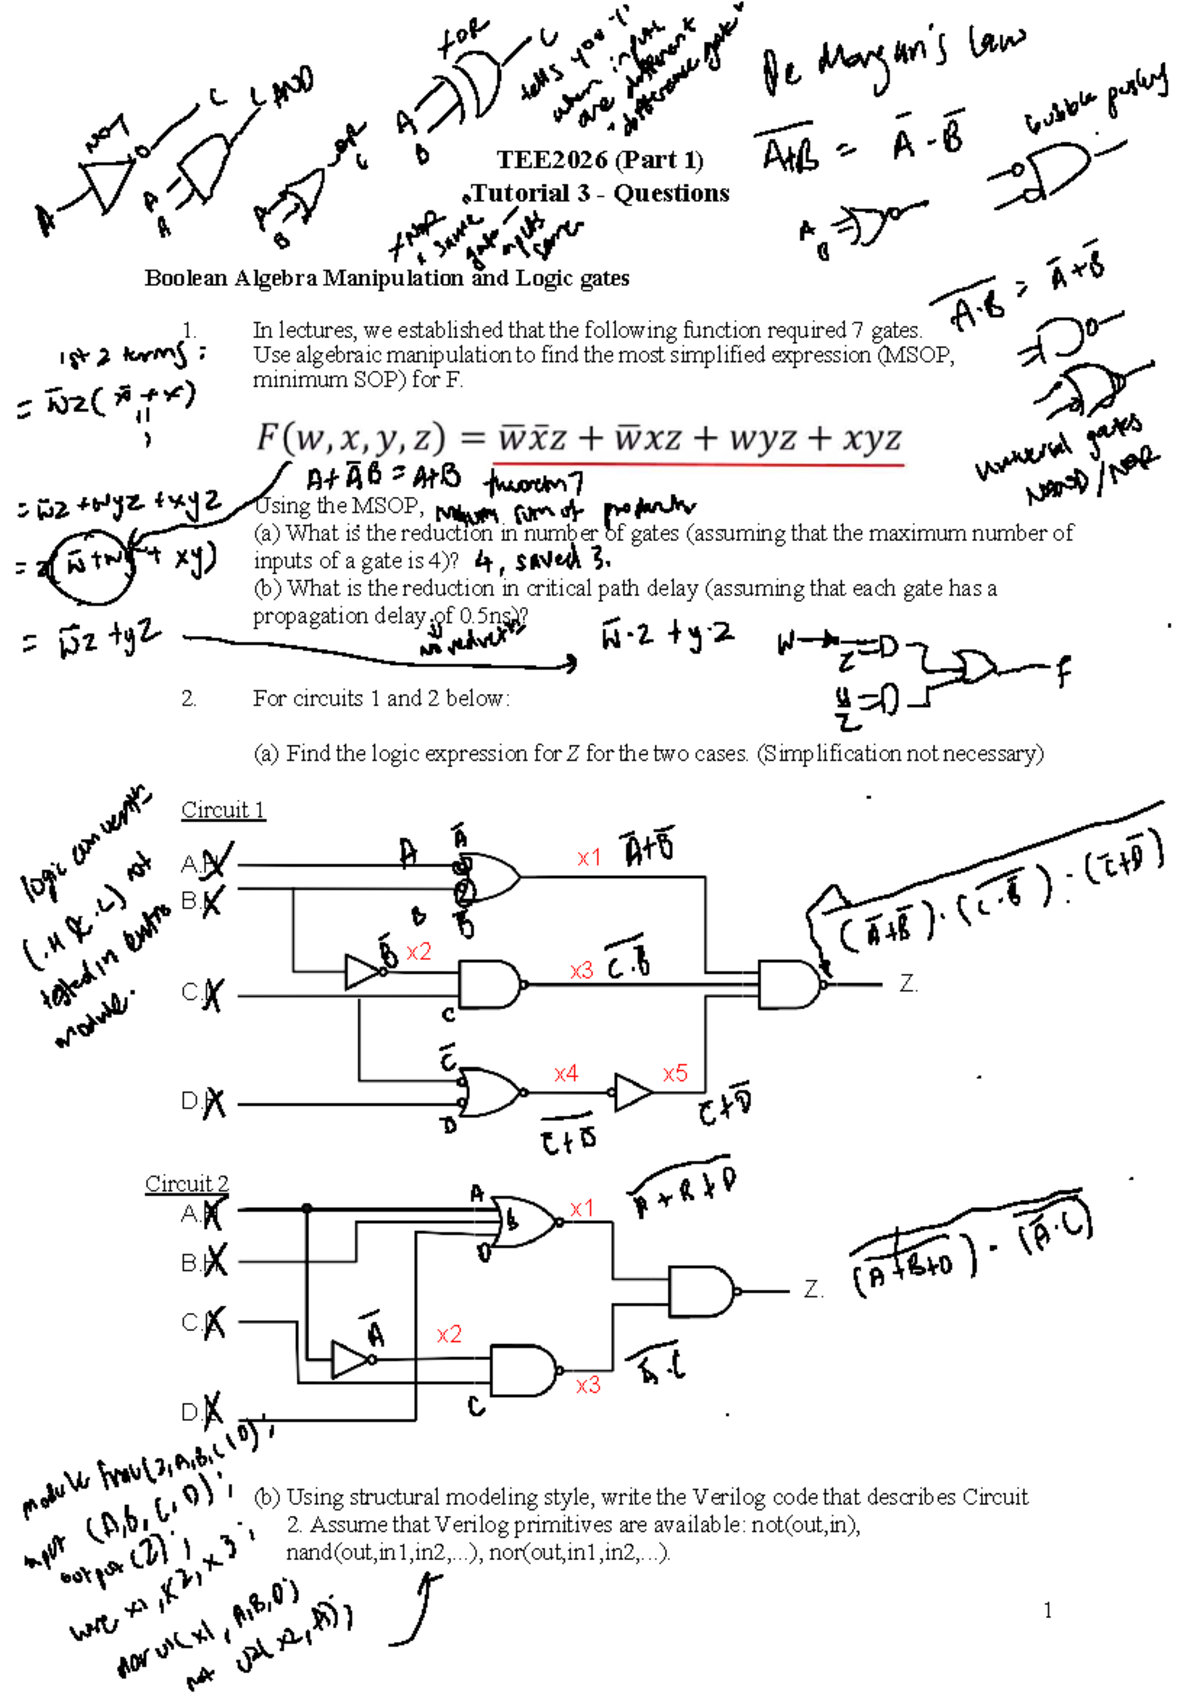 NOT
C
A
C AND
A
B
OR
C
A
B
XOR
C
A
B
tells you "1"
when inputs
are different
"difference gate"
De Morgan's Law
bubble pushing
A̅+̅B̅ = A̅ · B̅
TEE2026 (Part 1)
Tutorial 3 - Questions
XNOR
same
gate -
inputs
same
A
B
Boolean Algebra Manipulation and Logic gates
A̅·̅B̅ = A̅ + B̅
universal gates
NAND / NOR
1. In lectures, we established that the following function required 7 gates.
Use algebraic manipulation to find the most simplified expression (MSOP,
minimum SOP) for F.
1st 2 terms:
= w̅z(x̅ + x)
F(w, x, y, z) = w̅x̅z + w̅xz + wyz + xyz
A + A̅B = A+B theorem 7
= w̅z + wyz + xyz
Using the MSOP, minimum sum of products
(a) What is the reduction in number of gates (assuming that the maximum number of
inputs of a gate is 4)? 4, saved 3.
(b) What is the reduction in critical path delay (assuming that each gate has a
propagation delay of 0.5ns)?
= w̅z + yz
w̅·z + y·z
W
z
y
z
F
2. For circuits 1 and 2 below:
(a) Find the logic expression for Z for the two cases. (Simplification not necessary)
Circuit 1
logic converts
not
tested in
module.
A.
B.
C.
D.
A
A̅
B
B̅
x1 A̅+B̅
B̅ x2
C
x3 C̅·̅B̅
C̅
x4
x5
C̅+D̅
Z.
Circuit 2
A.
B.
C.
D.
A
B
D
x1
A̅+̅B̅+̅D̅
A̅ x2
C
x3
Z.
module
input (A,B,C,D);
output (Z);
wire x1, x2, x3;
nor u1(x1, A,B,D)
not u2(x2, A);
(b) Using structural modeling style, write the Verilog code that describes Circuit
2. Assume that Verilog primitives are available: not(out,in),
nand(out,in1,in2,...), nor(out,in1,in2,...).
1